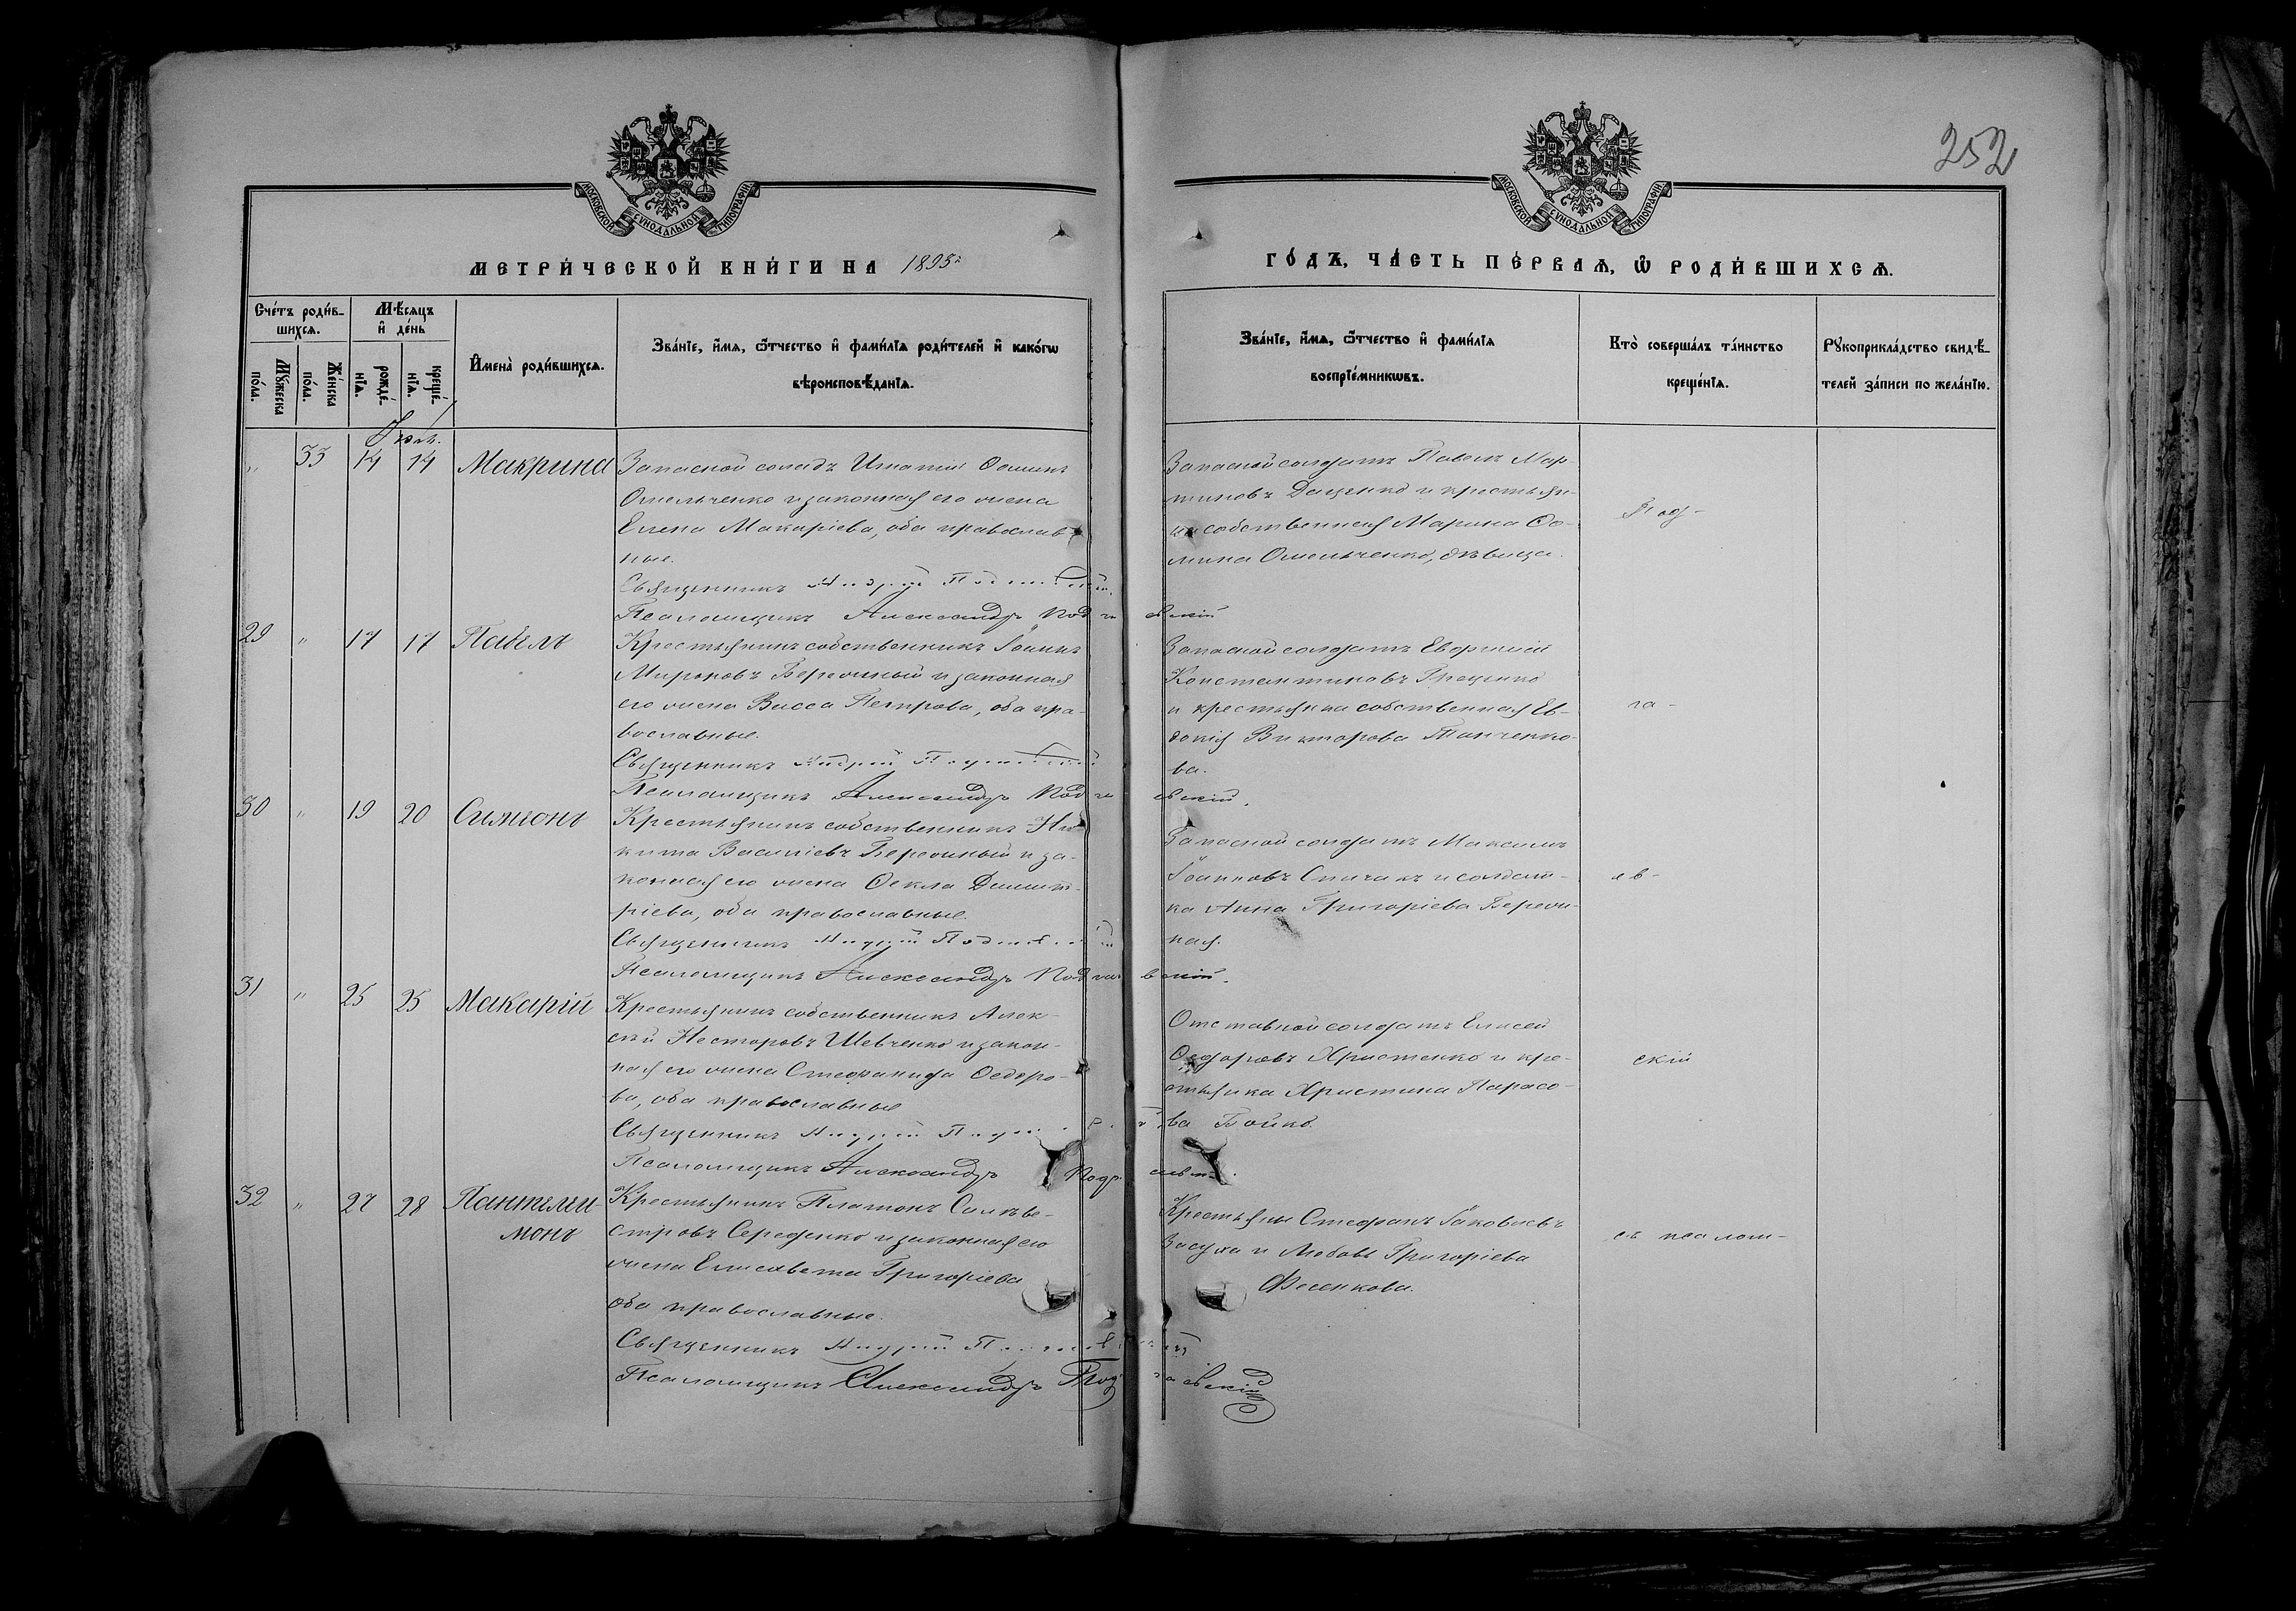 252
МОСКОВСКОЙ СѴНОДАЛЬНОЙ ТИПОГРАФІИ
МОСКОВСКОЙ СѴНОДАЛЬНОЙ ТИПОГРАФІИ
МЕТРИ́ЧЕСКОЙ КНИ́ГИ НА 1895
ГО́ДЪ, ЧА́СТЬ ПЕ́РВАѦ, Ѡ҆ РОДИ́ВШИХСѦ.
Сче́тъ роди́в-
шихсѧ.
Мѣ́сѧцъ
и҆ де́нь
Мꙋ́жеска
по́ла.
Же́нска
по́ла.
рожде́-
нїѧ.
креще́-
нїѧ.
И҆мена̀ роди́вшихсѧ.
Зва́нїе, и҆́мѧ, ѻ҆́тчество и҆ фами́лїѧ роди́телей и҆ како́гѡ
вѣроисповѣ́данїѧ.
Зва́нїе, и҆́мѧ, ѻ҆́тчество и҆ фами́лїѧ
воспрїе́мникѡвъ.
Кто̀ соверша́лъ та́инство
креще́нїѧ.
Рꙋкоприкла́дство свидѣ́-
телей за́писи по жела́нїю.
" 33 14 14 Макрина
Запасной солдатъ Игнатій Ѳоминъ
Омельченко и законная его жена
Елена Макаріева, оба православ-
ные.
Священникъ Андрей
Псаломщикъ Александръ Под
Запасной солдатъ Павелъ Мар-
тиновъ Даценко и крестьян-
ка собственная Марина Ѳо-
мина Омельченко, дѣвица.
Под-
29 " 17 17 Павелъ
Крестьянинъ собственникъ Іоаннъ
Мироновъ Бережный и законная
его жена Васса Петрова, оба пра-
вославные.
Священникъ Андрей
Псаломщикъ Александръ Под
Запасной солдатъ Евгеній
Константиновъ Гриценко
и крестьянка собственная Ев-
докія Викторова Танченко-
ва.
га-
30 " 19 20 Симеонъ
Крестьянинъ собственникъ Ни-
кита Василіевъ Бережный и за-
конная его жена Ѳекла Димит-
ріева, оба православные.
Священникъ Андрей
Псаломщикъ Александръ Под
Запасной солдатъ Максимъ
Іоанновъ Спичакъ и солдат-
ка Анна Григоріева Береж-
ная.
ев-
31 " 25 25 Макарій
Крестьянинъ собственникъ Алек-
сѣй Несторовъ Шевченко и закон-
ная его жена Стефанида Ѳедоро-
ва, оба православные
Священникъ Андрей
Псаломщикъ Александръ Под
Отставной солдатъ Елисей
Ѳедоровъ Христенко и кре-
стьянка Христина Тарасо-
ва Бойко.
скій
32 " 27 28 Пантелеи-
монъ
Крестьянинъ Платонъ Силве-
стровъ Середенко и законная его
жена Елисавета Григоріева
оба православные.
Священникъ Андрей
Псаломщикъ Александръ Под
Крестьяне Стефанъ Іаковлевъ
Засуха и Любовь Григоріева
Фесенкова.
съ псалом-